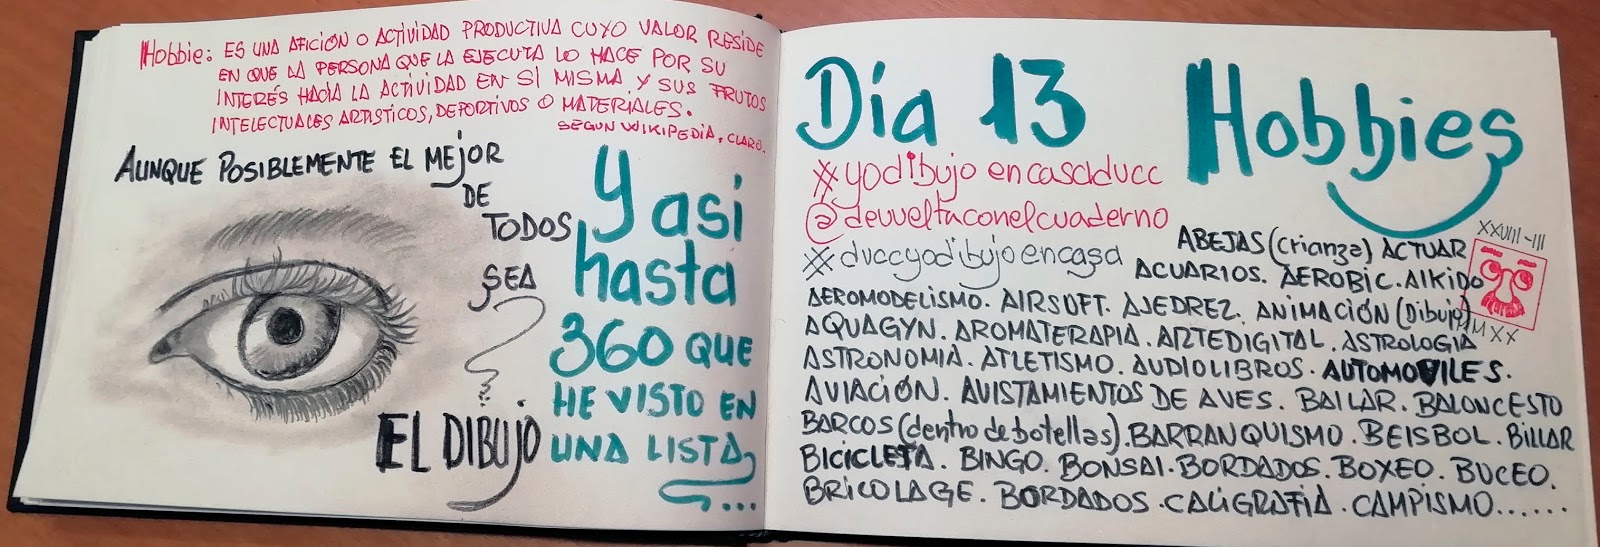 Hobbie: ES UNA AFICIÓN O ACTIVIDAD PRODUCTIVA CUYO VALOR RESIDE
EN QUE LA PERSONA QUE LA EJECUTA LO HACE POR SU
INTERÉS HACIA LA ACTIVIDAD EN SÍ MISMA Y SUS FRUTOS
INTELECTUALES ARTISTICOS, DEPORTIVOS O MATERIALES.
SEGUN WIKIPEDIA, CLARO.
AUNQUE POSIBLEMENTE EL MEJOR
DE
TODOS
SEA
EL DIBUJO
Y asi
hasta
360 QUE
HE VISTO EN
UNA LISTA
...
Día 13 Hobbies
#yodibujoencasaducc
@devueltaconelcuaderno
#duccyodibujoencasa
XXVIII-III
MMXX
ABEJAS (crianza) ACTUAR
ACUARIOS. AEROBIC. AIKIDO
AEROMODELISMO. AIRSOFT. AJEDREZ. ANIMACIÓN (Dibujo)
AQUAGYN. AROMATERAPIA. ARTEDIGITAL. ASTROLOGIA
ASTRONOMIA. ATLETISMO. AUDIOLIBROS. AUTOMOVILES.
AVIACIÓN. AVISTAMIENTOS DE AVES. BAILAR. BALONCESTO
BARCOS (dentro de botellas). BARRANQUISMO. BEISBOL. BILLAR
BICICLETA. BINGO. BONSAI. BORDADOS. BOXEO. BUCEO.
BRICOLAGE. BORDADOS. CALIGRAFIA. CAMPISMO......